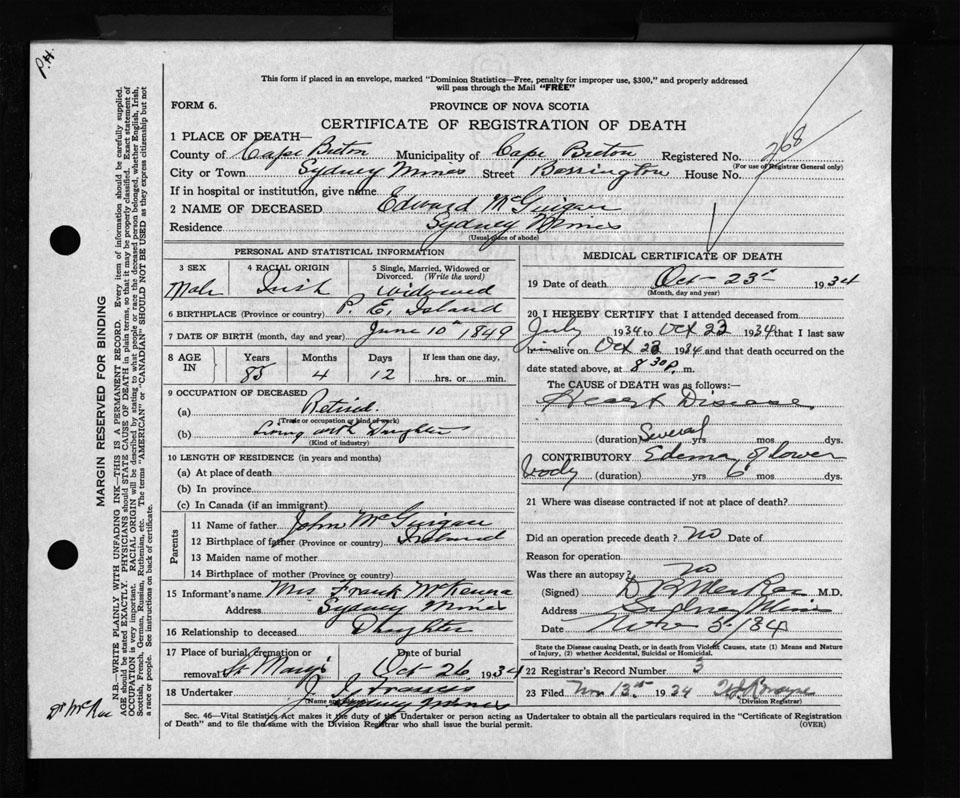 P.H.
This form if placed in an envelope, marked "Dominion Statistics—Free, penalty for improper use, $300," and properly addressed
will pass through the Mail "FREE"
FORM 6.
PROVINCE OF NOVA SCOTIA
CERTIFICATE OF REGISTRATION OF DEATH
1 PLACE OF DEATH—
County of Cape Breton Municipality of Cape Breton Registered No. 268
(For use of Registrar General only)
City or Town Sydney Mines Street Barrington House No.
If in hospital or institution, give name
2 NAME OF DECEASED Edward McGuigan
Residence Sydney Mines
(Usual place of abode)
PERSONAL AND STATISTICAL INFORMATION
3 SEX 4 RACIAL ORIGIN 5 Single, Married, Widowed or
Divorced. (Write the word)
Male Irish widowed
6 BIRTHPLACE (Province or country) P. E. Island
7 DATE OF BIRTH (month, day and year) June 10th 1849
8 AGE IN Years Months Days If less than one day,
85 4 12 hrs. or min.
9 OCCUPATION OF DECEASED
(a) Retired.
(Trade or occupation or kind of work)
(b) Living with Daughter
(Kind of industry)
10 LENGTH OF RESIDENCE (in years and months)
(a) At place of death
(b) In province
(c) In Canada (if an immigrant)
Parents
11 Name of father John McGuigan
12 Birthplace of father (Province or country) Ireland
13 Maiden name of mother
14 Birthplace of mother (Province or country)
15 Informant's name Mrs Frank McKenna
Address Sydney Mines
16 Relationship to deceased Daughter
17 Place of burial, cremation or Date of burial
removal St Mary's Oct 26, 1934
18 Undertaker J. J. Francis
(Name and address)
Sydney Mines
MEDICAL CERTIFICATE OF DEATH
19 Date of death Oct 23rd 1934
(Month, day and year)
20 I HEREBY CERTIFY that I attended deceased from
July 1934 to Oct 23 1934 that I last saw
him alive on Oct 23 1934 and that death occurred on the
date stated above, at 8 30 P. m.
The CAUSE of DEATH was as follows:—
Heart Disease
(duration) Several yrs mos dys.
CONTRIBUTORY Edema of lower
body (duration) yrs 6 mos dys.
21 Where was disease contracted if not at place of death?
Did an operation precede death? no Date of
Reason for operation
Was there an autopsy? no
(Signed) M.D.
Address Sydney Mines
Date Nov 5/34
State the Disease causing Death, or in death from Violent Causes, state (1) Means and Nature
of Injury, (2) whether Accidental, Suicidal or Homicidal.
22 Registrar's Record Number 3
23 Filed Nov 13th 1934
(Division Registrar)
Sec. 46—Vital Statistics Act makes it the duty of the Undertaker or person acting as Undertaker to obtain all the particulars required in the "Certificate of Registration
of Death" and to file the same with the Division Registrar who shall issue the burial permit. (OVER)
MARGIN RESERVED FOR BINDING
N.B.—WRITE PLAINLY WITH UNFADING INK—THIS IS A PERMANENT RECORD. Every item of information should be carefully supplied.
AGE should be stated EXACTLY. PHYSICIANS should STATE CAUSE OF DEATH in plain terms, so that it may be properly classified. Exact statement of
OCCUPATION is very important. RACIAL ORIGIN will be described by stating to what people or race the deceased person belonged, whether English, Irish,
Scottish, French, German, Russian, Ruthenian, etc. The terms "AMERICAN" or "CANADIAN" SHOULD NOT BE USED as they express citizenship but not
a race or people. See instructions on back of certificate.
Dr McRae